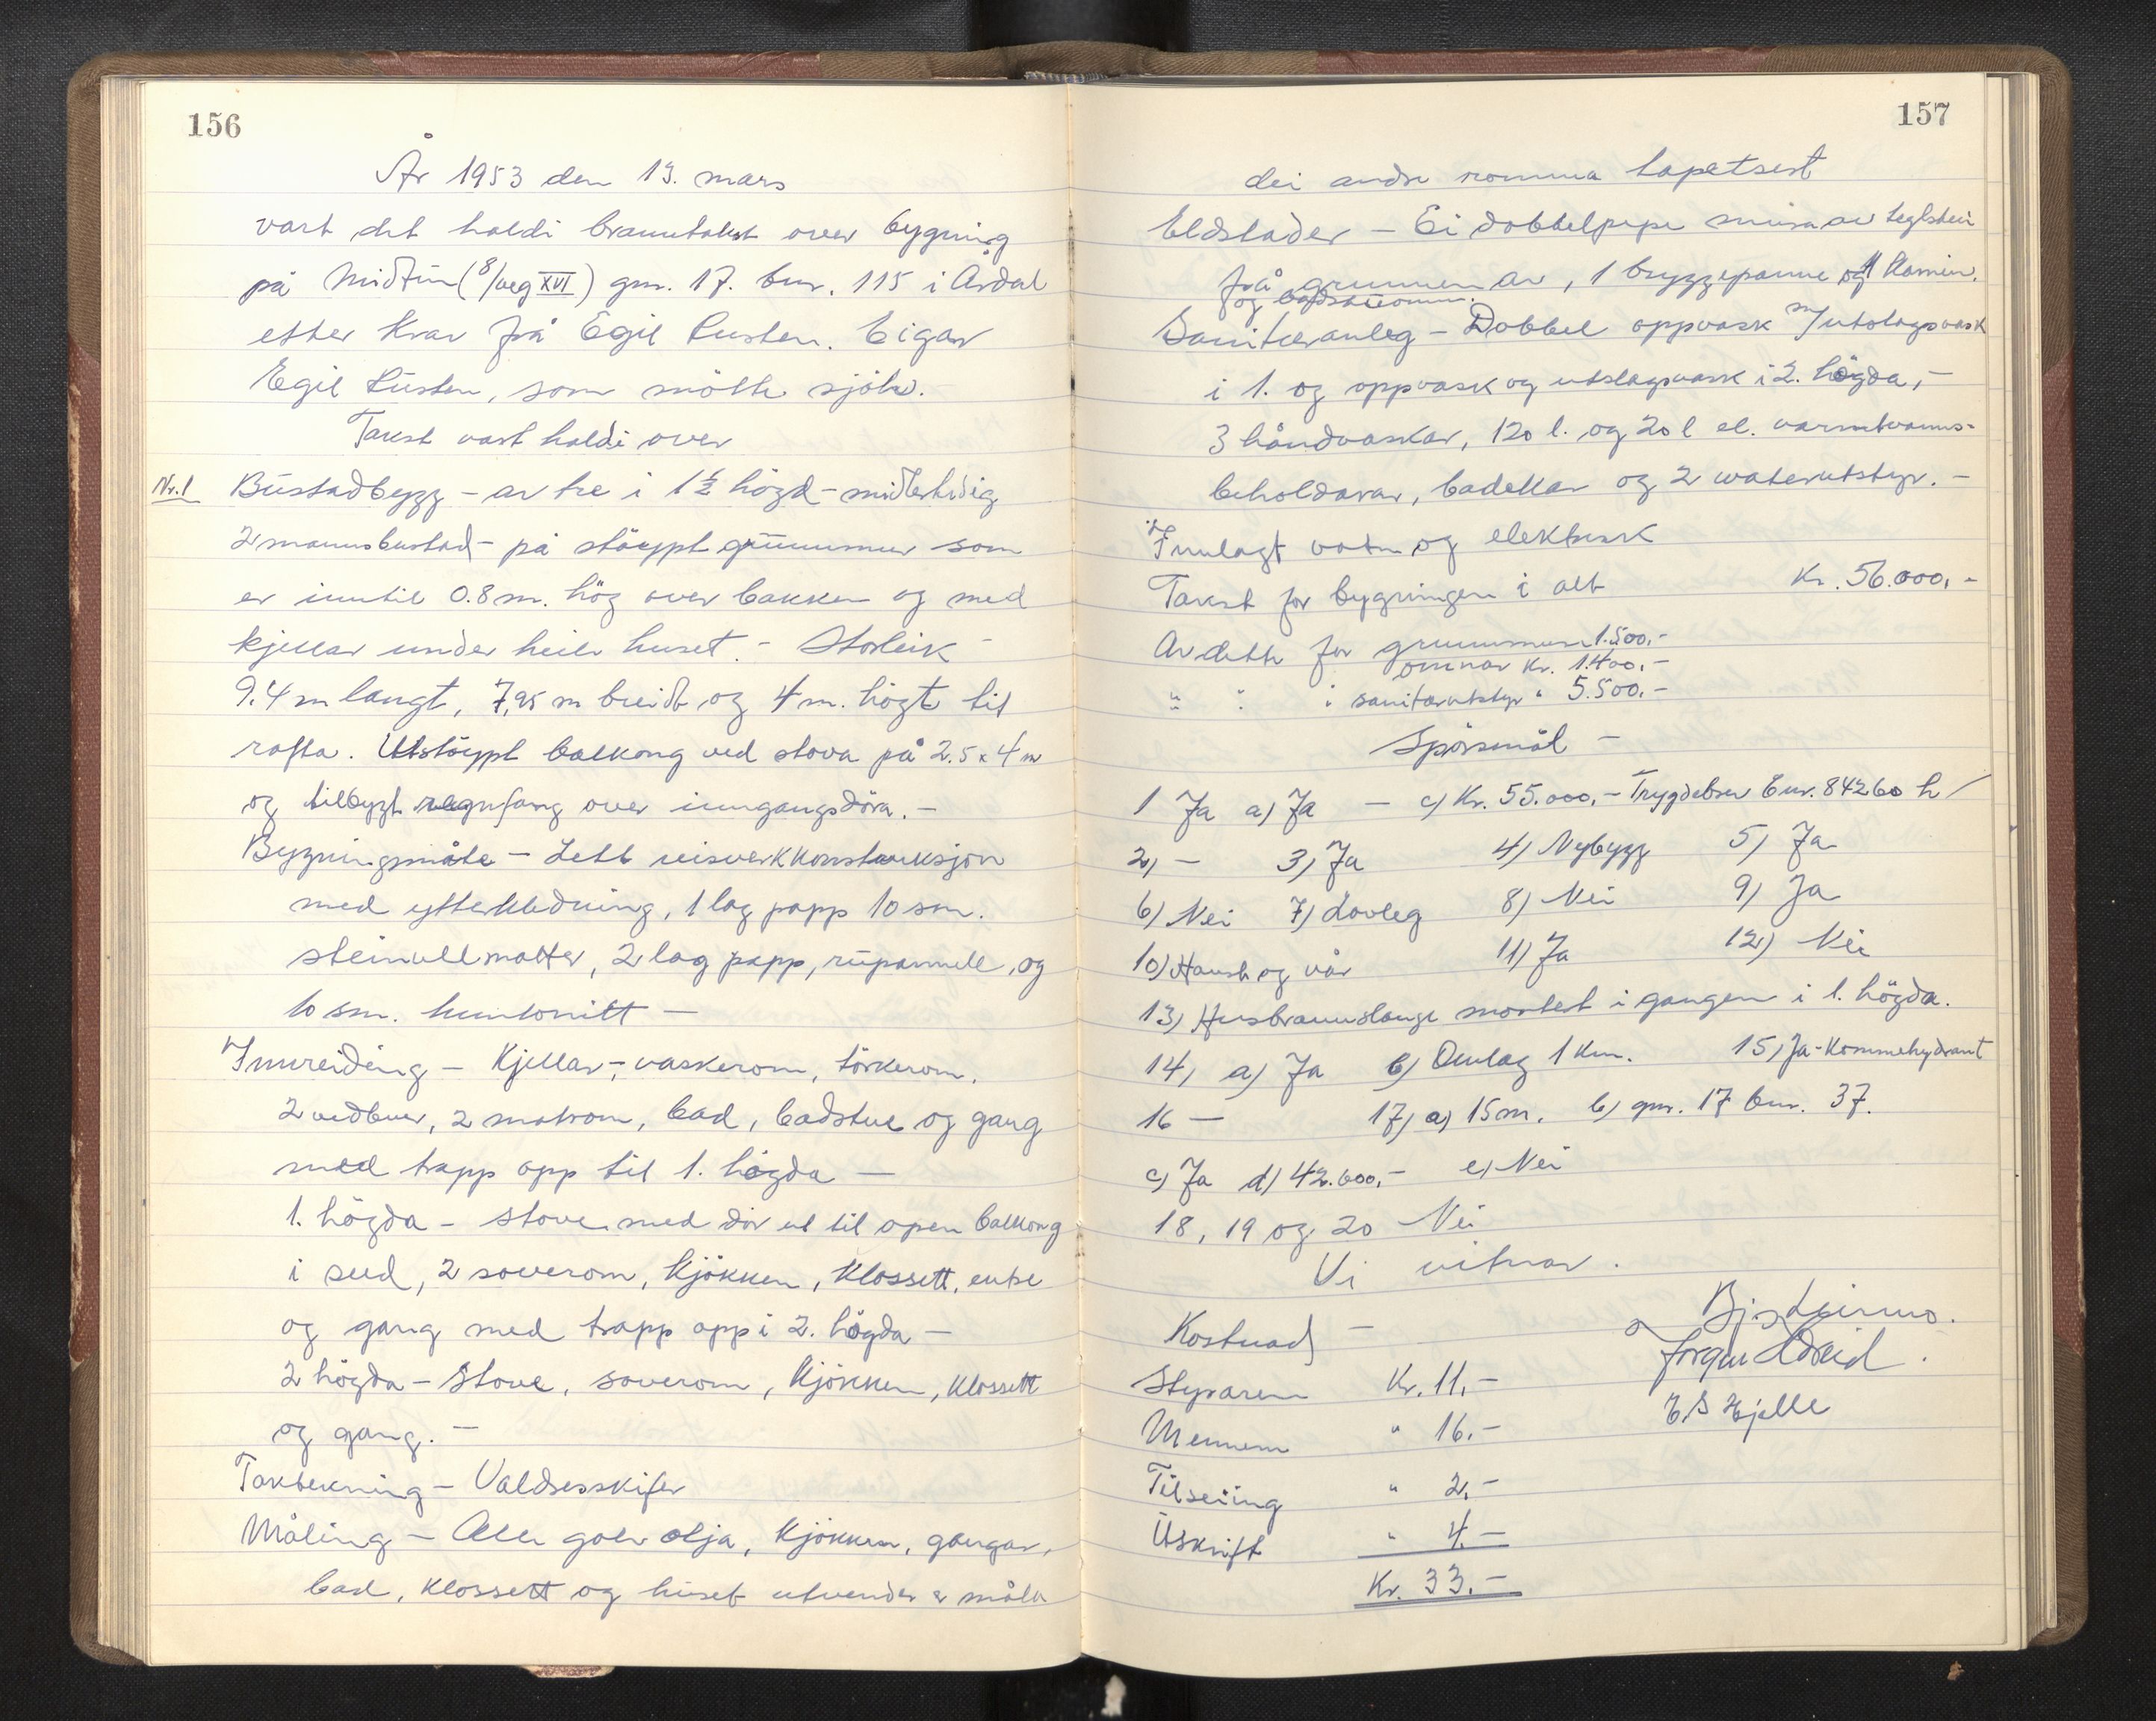 156
År 1953 den 13. mars
vart det haldi branntakst over bygning
på Midtun (8/veg XVI) gnr. 17. bnr. 115 i Årdal
etter krav frå Egil Lusten. Eigar
Egil Lusten, som mötte sjölv.
Takst vart haldi over
Nr. 1 Bustadbygg - av tre i 1½ högd - midlertidig
2 mannsbustad - på stöypt grunnmur som
er inntil 0.8 m. hög over bakken og med
kjellar under heile huset. - Storleik -
9.4 m langt, 7,95 m breidt og 4 m. högt til
rafta. Utstöypt balkong ved stova på 2.5 x 4 m
og tilbygt regnfang over inngangsdöra. -
Bygningsmåte - Lett reisverkkonstruksjon
med ytterkledning, 1 lag papp 10 sm.
steinullmatter, 2 lag papp, rupanell, og
10 sm. huntonitt -
Innreiding - Kjellar -, vaskerom, törkerom,
2 vedbuer, 2 matrom, bad, badstue og gang
med trapp opp til 1. högda -
1. högda - stove med dör ut til open balkong
i sud, 2 soverom, kjökken, klossett, entre
og gang med trapp opp i 2. högda -
2 högda - Stove, soverom, kjökken, klossett
og gang. -
Taktekning - Valdresskifer
Måling - Alle golv olja, kjökken, gangar,
bad, klossett og huset utvendes er måla
157
dei andre romma tapetsert
Eldstader - Ei dobbelpipe mura av teglstein
frå grunnen av, 1 bryggepanne og 1 kamin.
og badstueomn.
Sanitæranleg - Dobbel oppvask m/utslagsvask
i 1. og oppvask og utslagsvask i 2. högda, -
3 håndvaskar, 120 l. og 20 l el. varmtvanns-
beholdarar, badekar og 2 waterutstyr. -
Innlagt vatn og elektrisk
Takst for bygningen i alt Kr. 56.000,-
Av dette for grunnmuren 1.500,-
omnar Kr. 1400,-
" " " sanitærutstyr " 5.500,-
Spörsmål -
1 Ja a) Ja - c) Kr. 55.000,- Trygdebrev bnr. 84260 h/
2) - 3) Ja 4) Nybygg 5) Ja
6) Nei 7) Lovleg 8) Nei 9) Ja
10) Haust og vår 11) Ja 12) Nei
13) Husbrannslange montert i gangen i 1. högda.
14) a) Ja b) Omlag 1 km. 15) Ja - Kommehydrant
16 - 17) a) 15 m. b) gnr. 17 bnr. 37.
c) Ja d) 42.600,- e) Nei
18, 19 og 20 Nei
Vi vitnar.
Kostnad -
Jørgen
Styraren Kr. 11,-
E.S Hjelle
Mennene " 16.-
Tilseiing " 2,-
Utskrift " 4.-
Kr. 33.-